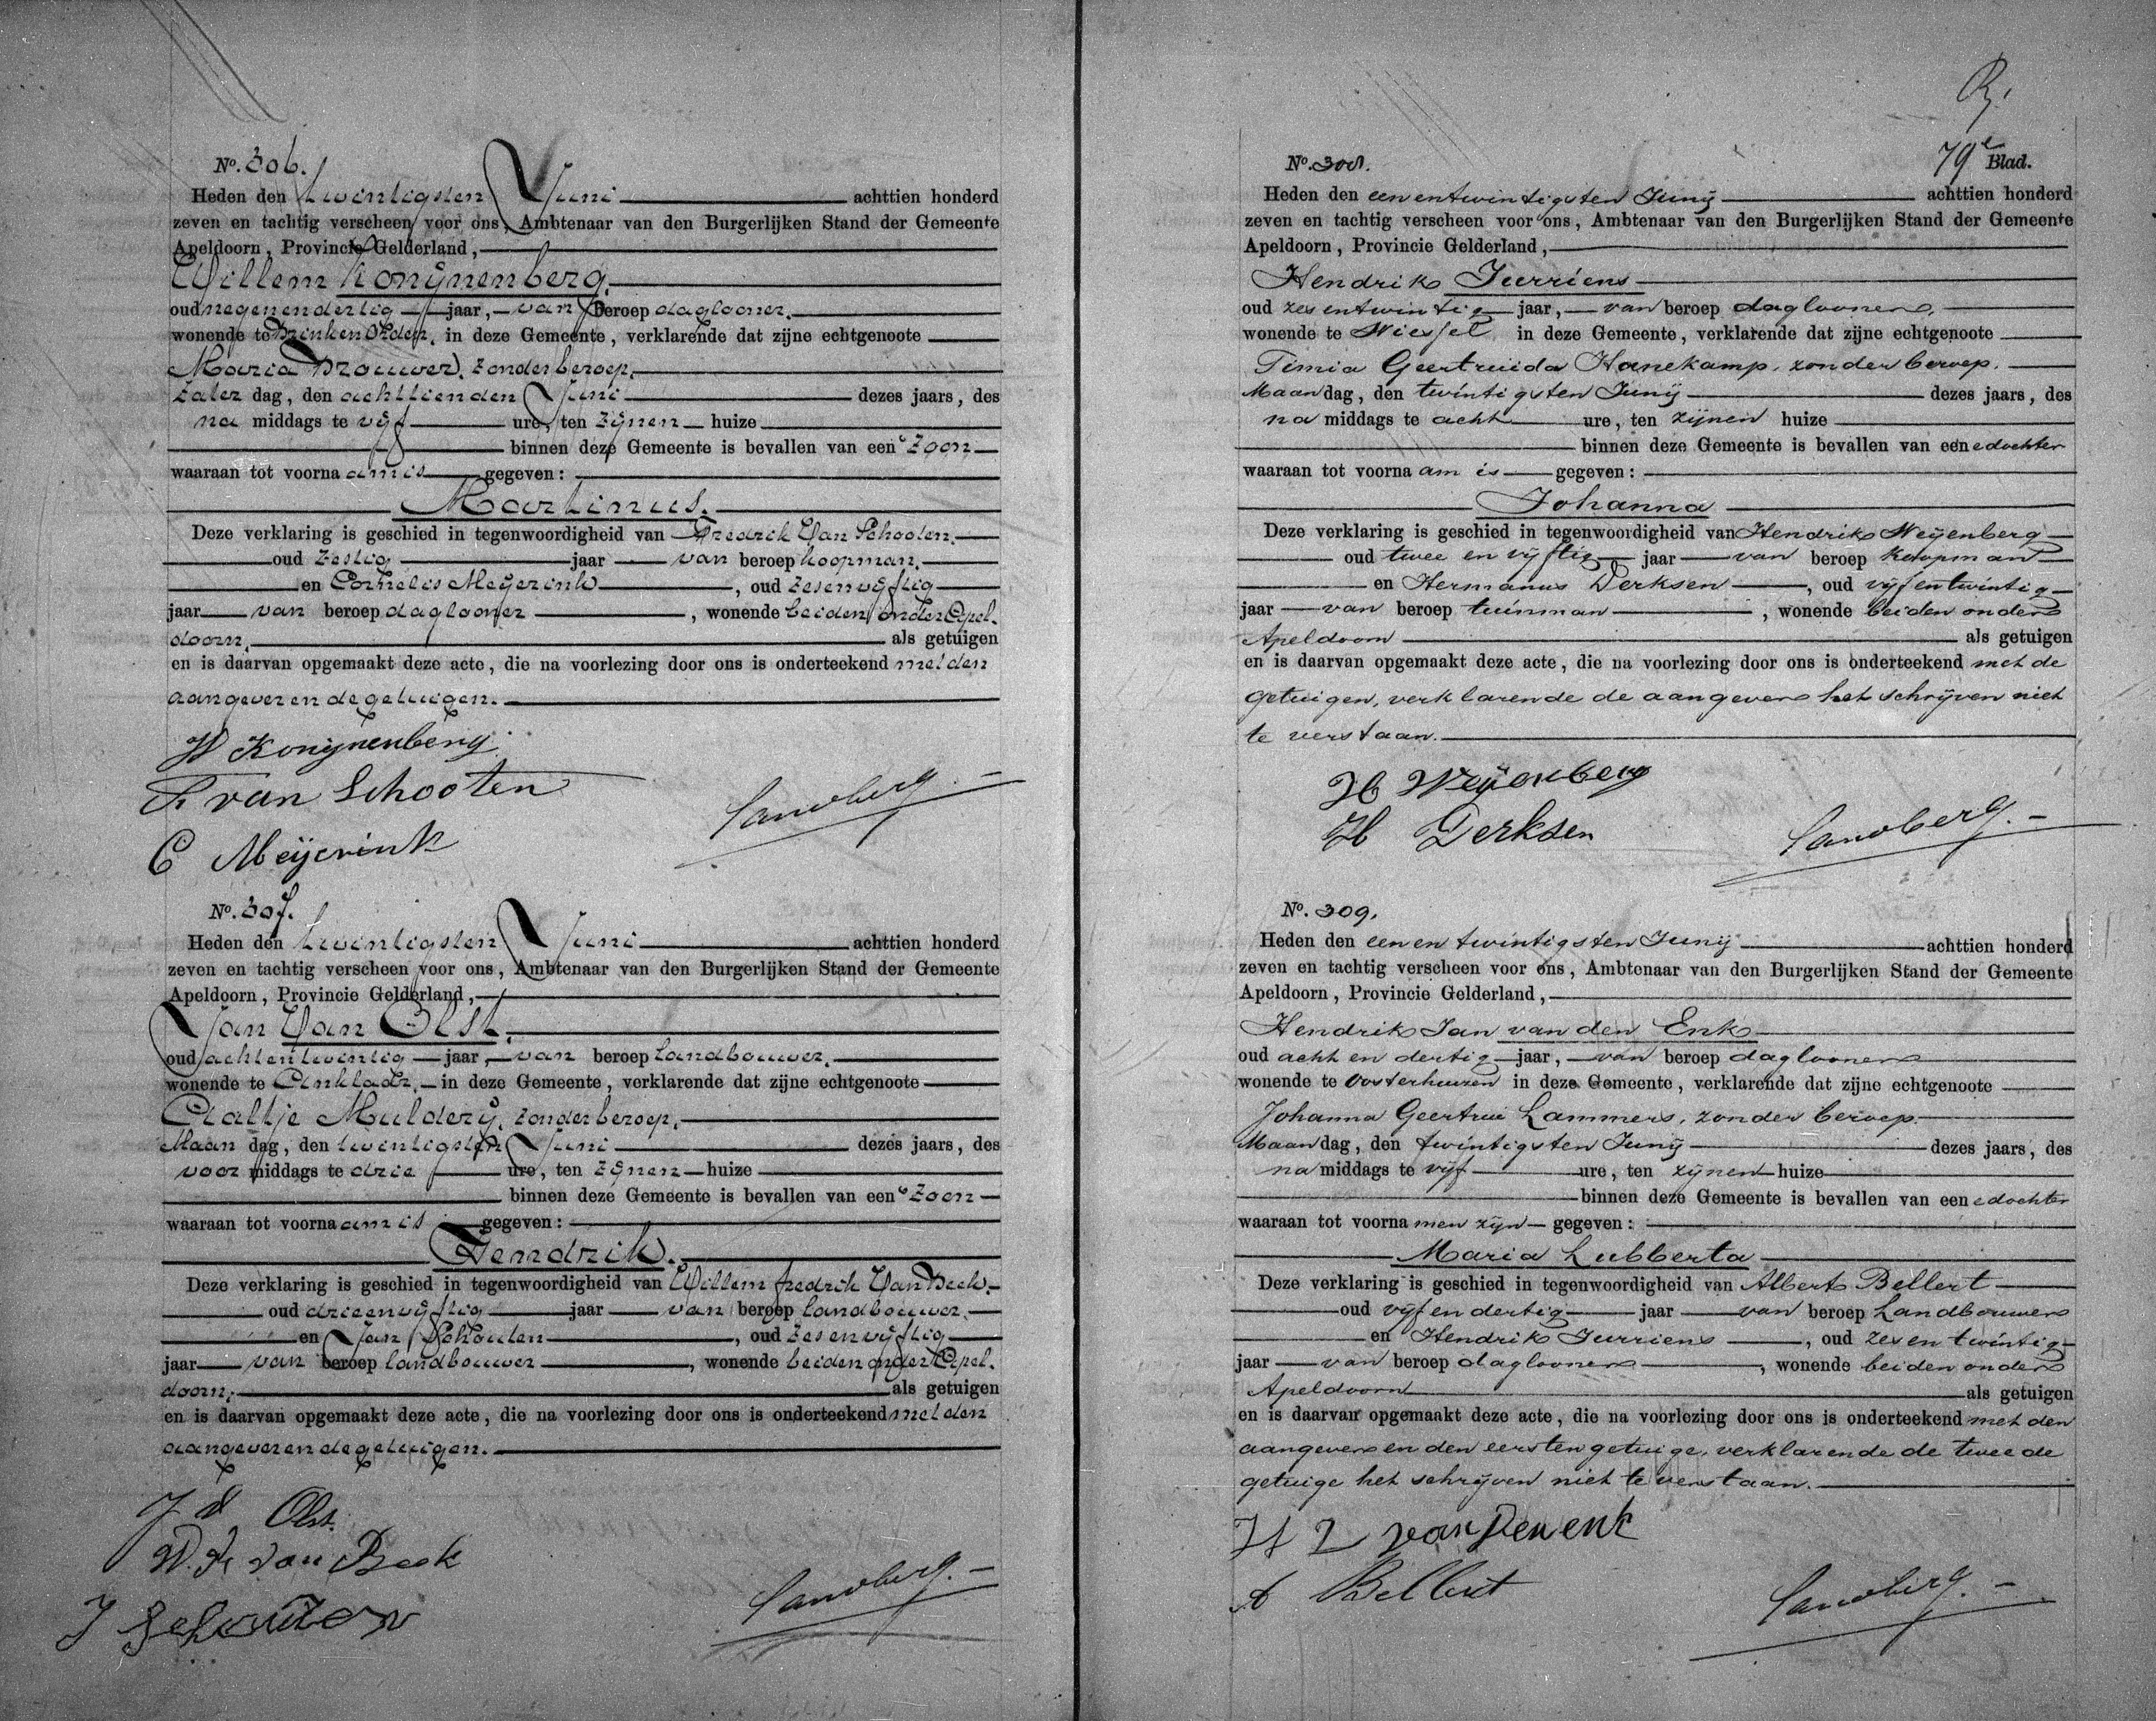 No. 306.
Heden den twintigsten Juni achttien honderd
zeven en tachtig verscheen voor ons, Ambtenaar van den Burgerlijken Stand der Gemeente
Apeldoorn, Provincie Gelderland,
Willem Konijnenberg.
oud negenendertig jaar, van beroep daglooner.
wonende te Brink en Orden, in deze Gemeente, verklarende dat zijne echtgenoote
Maria Brouwer, zonder beroep,
Zater dag, den achttienden Juni dezes jaars, des
na middags te vijf ure, ten zijnen huize
binnen deze Gemeente is bevallen van een Zoon
waaraan tot voorna am is gegeven:
Martinus.
Deze verklaring is geschied in tegenwoordigheid van Fredrik Van Schooten.
oud zestig jaar van beroep koopman.
en Cornelis Meijerink, oud zesenvijftig
jaar van beroep daglooner, wonende beiden onder Apel-
doorn, als getuigen
en is daarvan opgemaakt deze acte, die na voorlezing door ons is onderteekend met den
aangever en de getuigen.
W Konijnenberg
F van Schooten
C Meijerink
Sandberg.
No. 307.
Heden den twintigsten Juni achttien honderd
zeven en tachtig verscheen voor ons, Ambtenaar van den Burgerlijken Stand der Gemeente
Apeldoorn, Provincie Gelderland,
Jan Van Olst.
oud achtentwintig jaar, van beroep landbouwer.
wonende te in deze Gemeente, verklarende dat zijne echtgenoote
Aaltje Mulderij, zonder beroep,
Maan dag, den twintigsten Juni dezes jaars, des
voor middags te drie ure, ten zijnen huize
binnen deze Gemeente is bevallen van een Zoon
waaraan tot voorna am is gegeven:
Hendrik.
Deze verklaring is geschied in tegenwoordigheid van Willem Fredrik Van Beek.
oud drieenvijftig jaar van beroep landbouwer.
en Jan Schouten, oud zesenvijftig
jaar van beroep landbouwer, wonende beiden onder Apel-
doorn, als getuigen
en is daarvan opgemaakt deze acte, die na voorlezing door ons is onderteekend met den
aangever en de getuigen.
J v Olst.
W. F. van Beek
J Schouten
Sandberg.
79e Blad.
No. 308.
Heden den een en twintigsten Junij achttien honderd
zeven en tachtig verscheen voor ons, Ambtenaar van den Burgerlijken Stand der Gemeente
Apeldoorn, Provincie Gelderland,
Hendrik Jurriens
oud zes en twintig jaar, van beroep daglooner,
wonende te Wiessel in deze Gemeente, verklarende dat zijne echtgenoote
Timia Geertruida Hanekamp, zonder beroep,
Maan dag, den twintigsten Junij dezes jaars, des
na middags te acht ure, ten zijnen huize
binnen deze Gemeente is bevallen van een e dochter
waaraan tot voorna am is gegeven:
Johanna
Deze verklaring is geschied in tegenwoordigheid van Hendrik Weijenberg
oud twee en vijftig jaar van beroep koopman
en Hermanus Derksen, oud vijf en twintig
jaar van beroep tuinman, wonende beiden onder
Apeldoorn als getuigen
en is daarvan opgemaakt deze acte, die na voorlezing door ons is onderteekend met de
getuigen, verklarende de aangever het schrijven niet
te verstaan.
H Weijenberg
H Derksen
Sandberg.
No. 309.
Heden den een en twintigsten Junij achttien honderd
zeven en tachtig verscheen voor ons, Ambtenaar van den Burgerlijken Stand der Gemeente
Apeldoorn, Provincie Gelderland,
Hendrik Jan van den Enk
oud acht en dertig jaar, van beroep daglooner
wonende te Oosterhuizen in deze Gemeente, verklarende dat zijne echtgenoote
Johanna Geertrui Lammers, zonder beroep.
Maan dag, den twintigsten Junij dezes jaars, des
na middags te vijf ure, ten zijnen huize
binnen deze Gemeente is bevallen van een e dochter
waaraan tot voorna men zijn gegeven:
Maria Lubberta
Deze verklaring is geschied in tegenwoordigheid van Albert Bellert
oud vijf en dertig jaar van beroep Landbouwer
en Hendrik Jurriens, oud zes en twintig
jaar van beroep daglooner, wonende beiden onder
Apeldoorn als getuigen
en is daarvan opgemaakt deze acte, die na voorlezing door ons is onderteekend met den
aangever en den eersten getuige, verklarende de tweede
getuige het schrijven niet te verstaan.
van den enk
A Bellert
Sandberg.